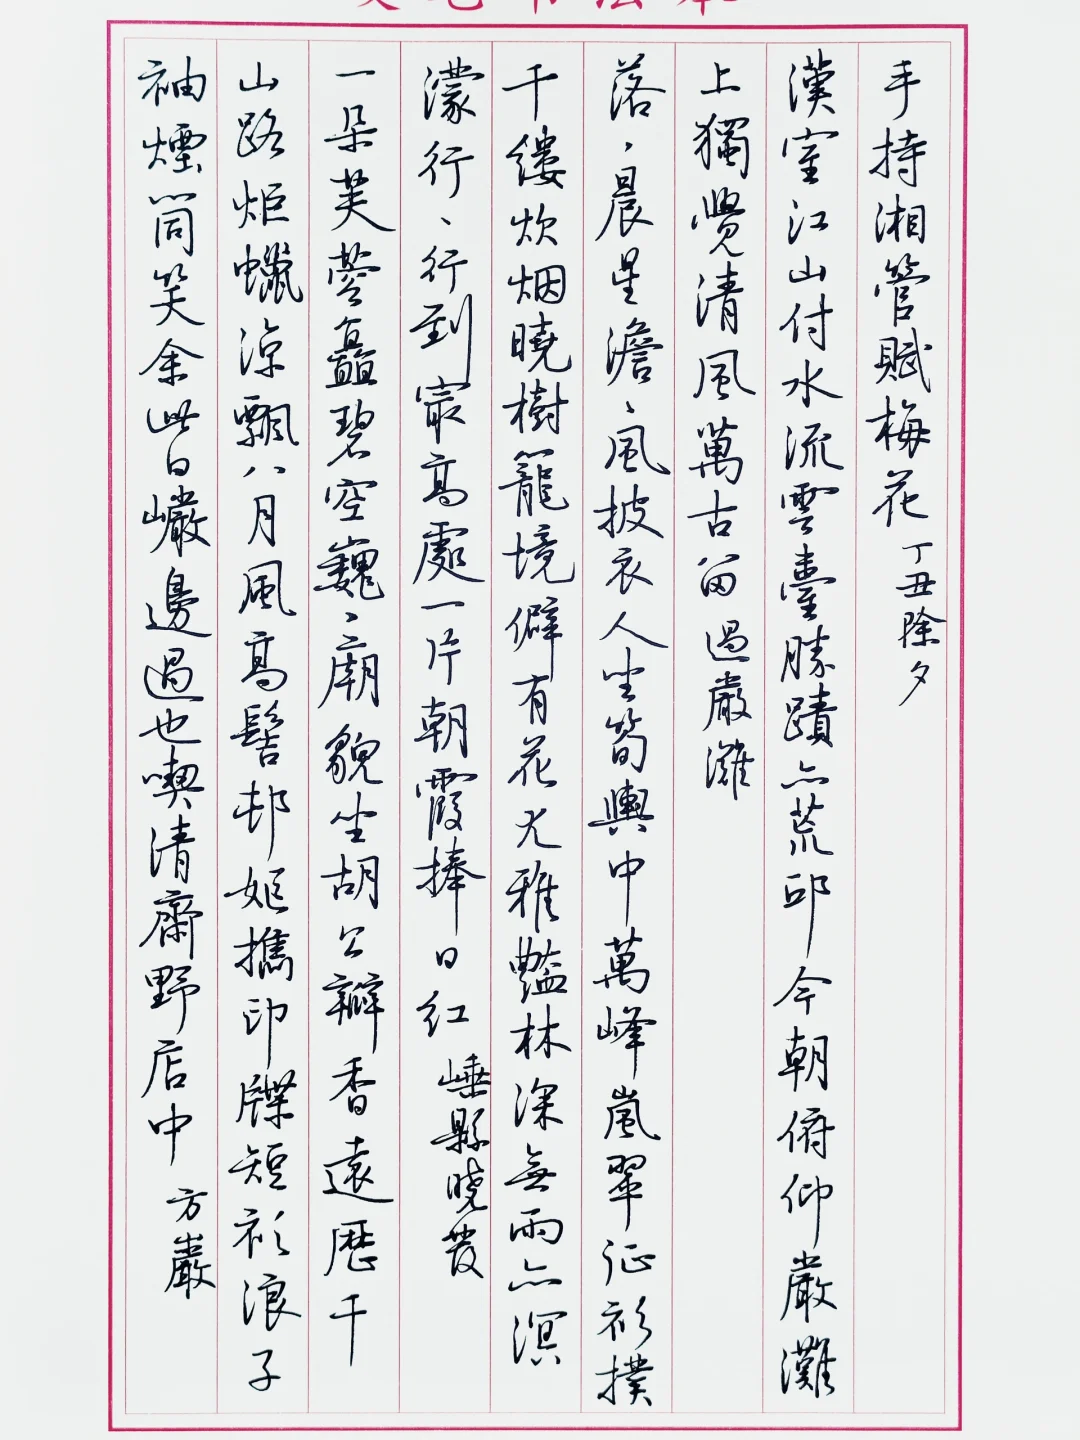 硬笔书法本
手持湘管賦梅花 丁丑除夕
漢室江山付水流雲臺勝蹟亦荒邱今朝俯仰嚴灘
上獨覺清風萬古留 過嚴灘
落、晨星澹、風披衣人坐筍輿中萬峰嵐翠征衫撲
千縷炊烟曉樹籠境僻有花尤雅豔林深無雨亦溟
濛行、行到最高處一片朝霞捧日紅 嵊縣曉發
一朵芙蓉矗碧空巍、廟貌坐胡公瓣香遠歷千
山路炬蠟涼飄八月風高髻邨姬攜印牒短衫浪子
袖煙筒笑余此日巖邊過也喫清齋野店中 方巖